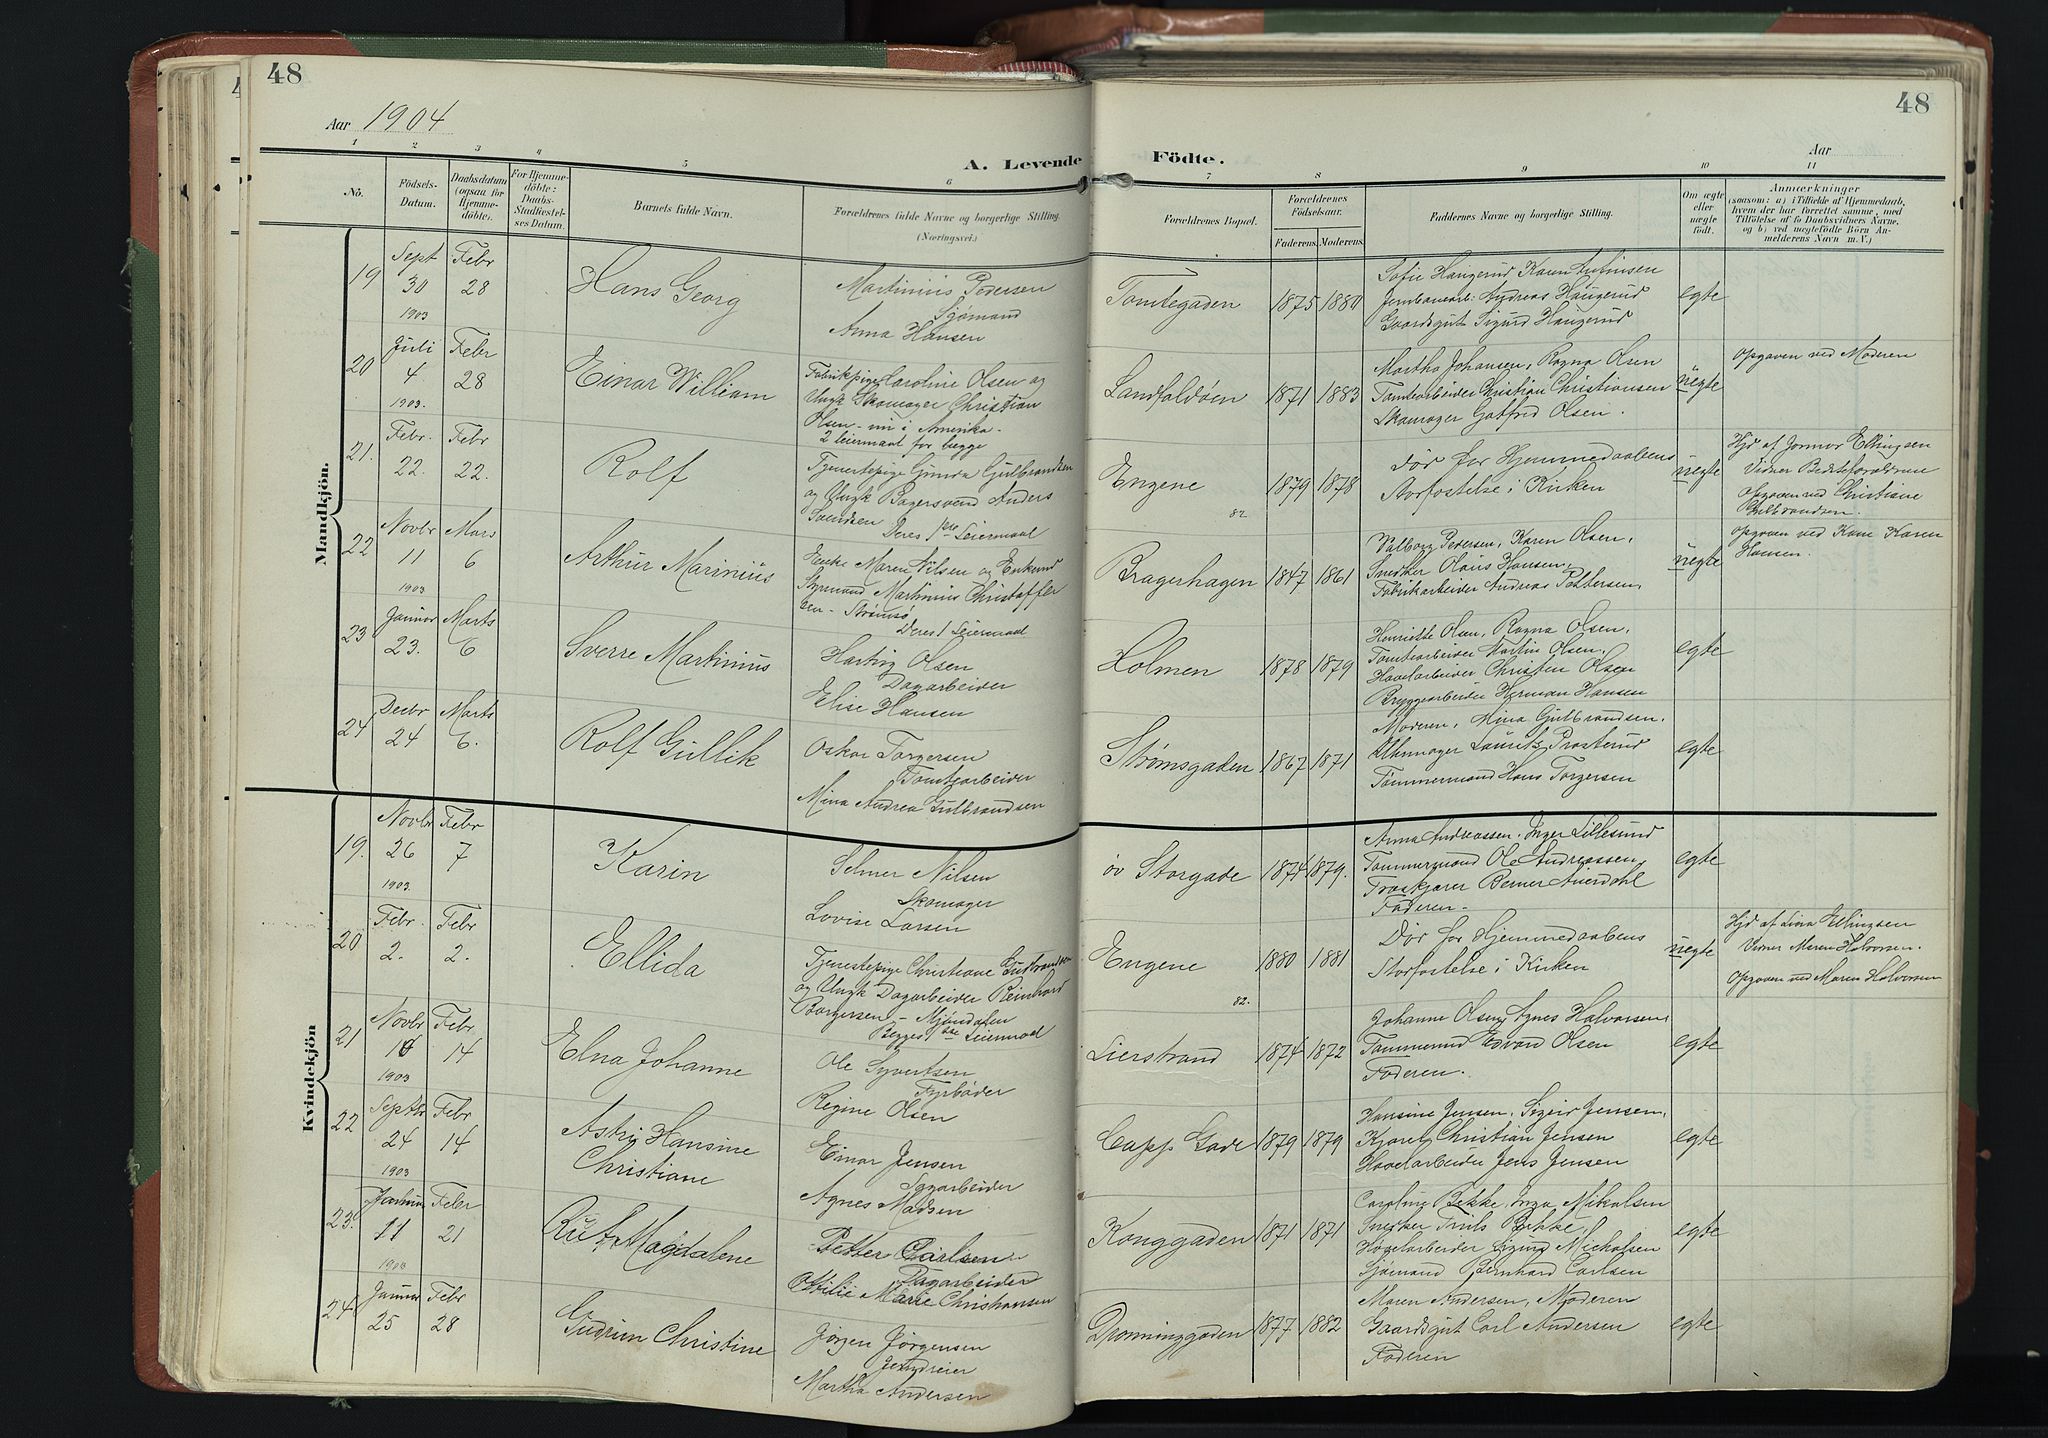 48
48
Aar 1904
Aar
A. Levende Födte.
1 2 3 4 5 6 7 8 9 10 11
No.
Födsels-Datum.
Daabsdatum (ogsaa for Hjemmedöbte).
For Hjemmedöbte: Daabs-Stadfæstelses Datum.
Barnets fulde Navn.
Forældrenes fulde Navne og borgerlige Stilling.
(Næringsvei.)
Forældrenes Bopæl.
Forældrenes Födselsaar.
Faderens. Moderens.
Faddernes Navne og borgerlige Stilling.
Om ægte eller uægte födt.
Anmærkninger
(saasom: a) i Tilfælde af Hjemmedaab, hvem der har forrettet samme, med Tilföielse af to Daabsvidners Navne, og b) ved uægtefödte Börn Anmelderens Navn m. V.)
Mandkjön.
19
Sept 30 1903
Febr 28
Hans Georg
Martinius Pedersen
Sjømand
Anna Hansen
Tomtegaden
1875 1880
Sofie Haugerud Karen
Andreas Haugerud
Gaardsgut Sigurd Haugerud
egte
20
Juli 4 1903.
Febr 28
Einar William
Fabrikpige Caroline Olsen og
Ungk Skomager Christian
Olsen - nu i Amerika -
2 leiermaal for begge
Landfaldøen
1871 1883
Martha Johansen, Ragna Olsen
Tomtearbeider Christian Christiansen
Skomager Gotfred Olsen.
uegte
Opgaven ved Moderen
21.
Febr. 22.
Febr 22.
Rolf
Tjenestepige Gunda Gulbrandsen
og Ungk Bagersvend Anders
Svendsen
Deres 1ste Leiermaal
Engene
82
1879 1878
Dør før Hjemmedaabens
Stadfæstelse i Kirken
uegte
Hjd af Jormor Ellingsen
Vidner Bedsteforældrene
Opgaven ved Christiane
Gulbrandsen.
22
Novbr 11 1903
Mars 6
Arthur Marinius
Enke Maren Nilsen og Enkemd
Styrmand Martinius Christoffer
sen - Strømsø
Deres 1 Leiermaal
Bragerhagen
1847 1861
Valborg Pedersen, Karen Olsen,
Snedker Olaus Hansen,
Fabrikarbeider Andreas Pettersen,
uegte
Opgaven ved Kone Karen
Hansen.
23
Januar 23.
Marts 6
Sverre Martinius
Hartvig Olsen
Dagarbeider
Elise Hansen
Holmen
1878 1879
Henriette Olsen, Ragna Olsen,
Tomtearbeider Martin Olsen,
Høvelarbeider Christen Olsen
Bryggearbeider Herman Hansen
egte
24
Decbr 24
Marts 6.
Rolf Gullik
Oskar Torgersen
Tomtearbeider
Mina Andrea Gulbrandsen
Strømsgaden
1867 1871
Moderen, Mina Gulbrandsen.
Uhrmager Laurits Prosterud
Tømmermand Hans Torgersen
egte
Kvindekjön
19.
Novbr 26 1903
Febr 7
Karin
Selmer Nilsen
Skomager
Lovise Larsen
øv Storgade
1874 1879.
Anna Andreassen, Inger Lillesund
Tømmermand Ole Andreassen,
Berner
Faderen.
egte
20
Febr. 2.
Febr 2.
Ellida
Tjenestepige Christiane Gulbrandsen
og Ungk Dagarbeider Reinhard
Borgersen - Mjøndalen
Begges 1ste Leiermaal
Engene
82.
1880 1881
Dør før Hjemmedaabens
Stadfæstelse i Kirken
uegte
Hjd af Lina Ellingsen
Vidner Maren Halvorsen.
Opgaven ved Maren Halvorsen
21
Novbr 10 1903
Febr 14
Elna Johanne
Ole Syvertsen
Fyrbøder
Regine Olsen
Lierstrand
1874 1872
Johanne Olsen, Agnes Halvorsen,
Tømmermd Edvard Olsen
Faderen.
egte
22
Septbr 24 1903
Febr 14
Astri Hansine
Christiane
Einar Jensen
Sagarbeider
Agnes Madsen
Capp Gade
1879 1879
Hansine Jensen, Sigrid Jensen,
Christian Jensen
Høvelarbeider Jens Jensen
egte
23.
Januar 11 1903
Febr 21
Rut Magdalene
Petter Carlsen
Dagarbeider
Ottilie Marie Christiansen
Konggaden
1871 1871
Caroline Bekke, Inga Mikalsen
Snedker Truls Bekke,
Høvelarbeider Sigurd Michalsen
Sjømand Bernhard Carlsen
egte
24
Januar 25
Febr 28
Gudrun Christine
Jørgen Jørgensen
Martha Andersen
Dronninggaden
1877 1882
Maren Andersen, Moderen
Gaardsgut Carl Andersen
Faderen
egte